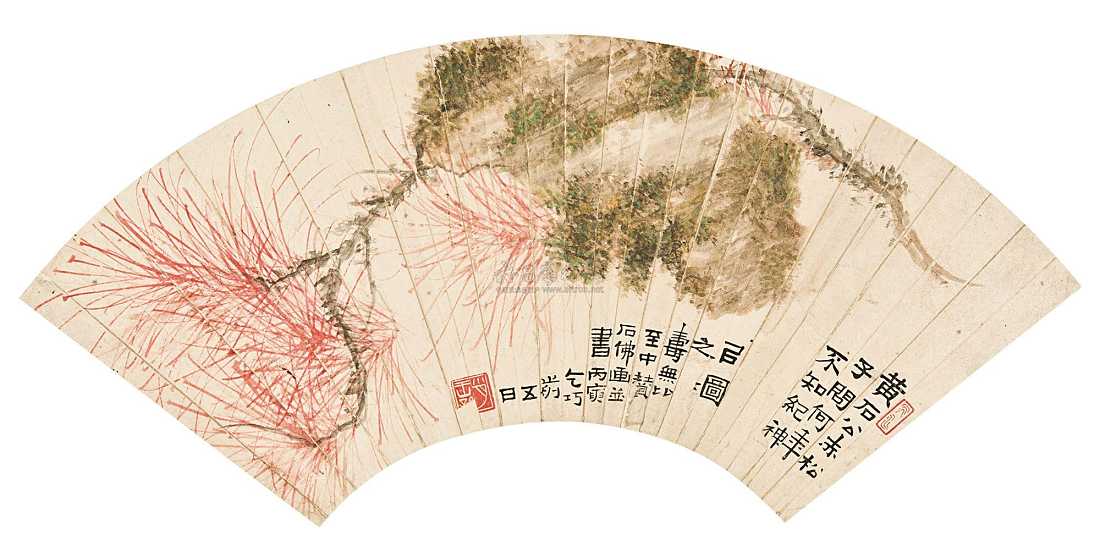 黄石公赤松
子問何年
不知紀神
之圖
壽無比
至中贊
石佛画並
書丙寅
乞巧
前
五
日
www.artron.net